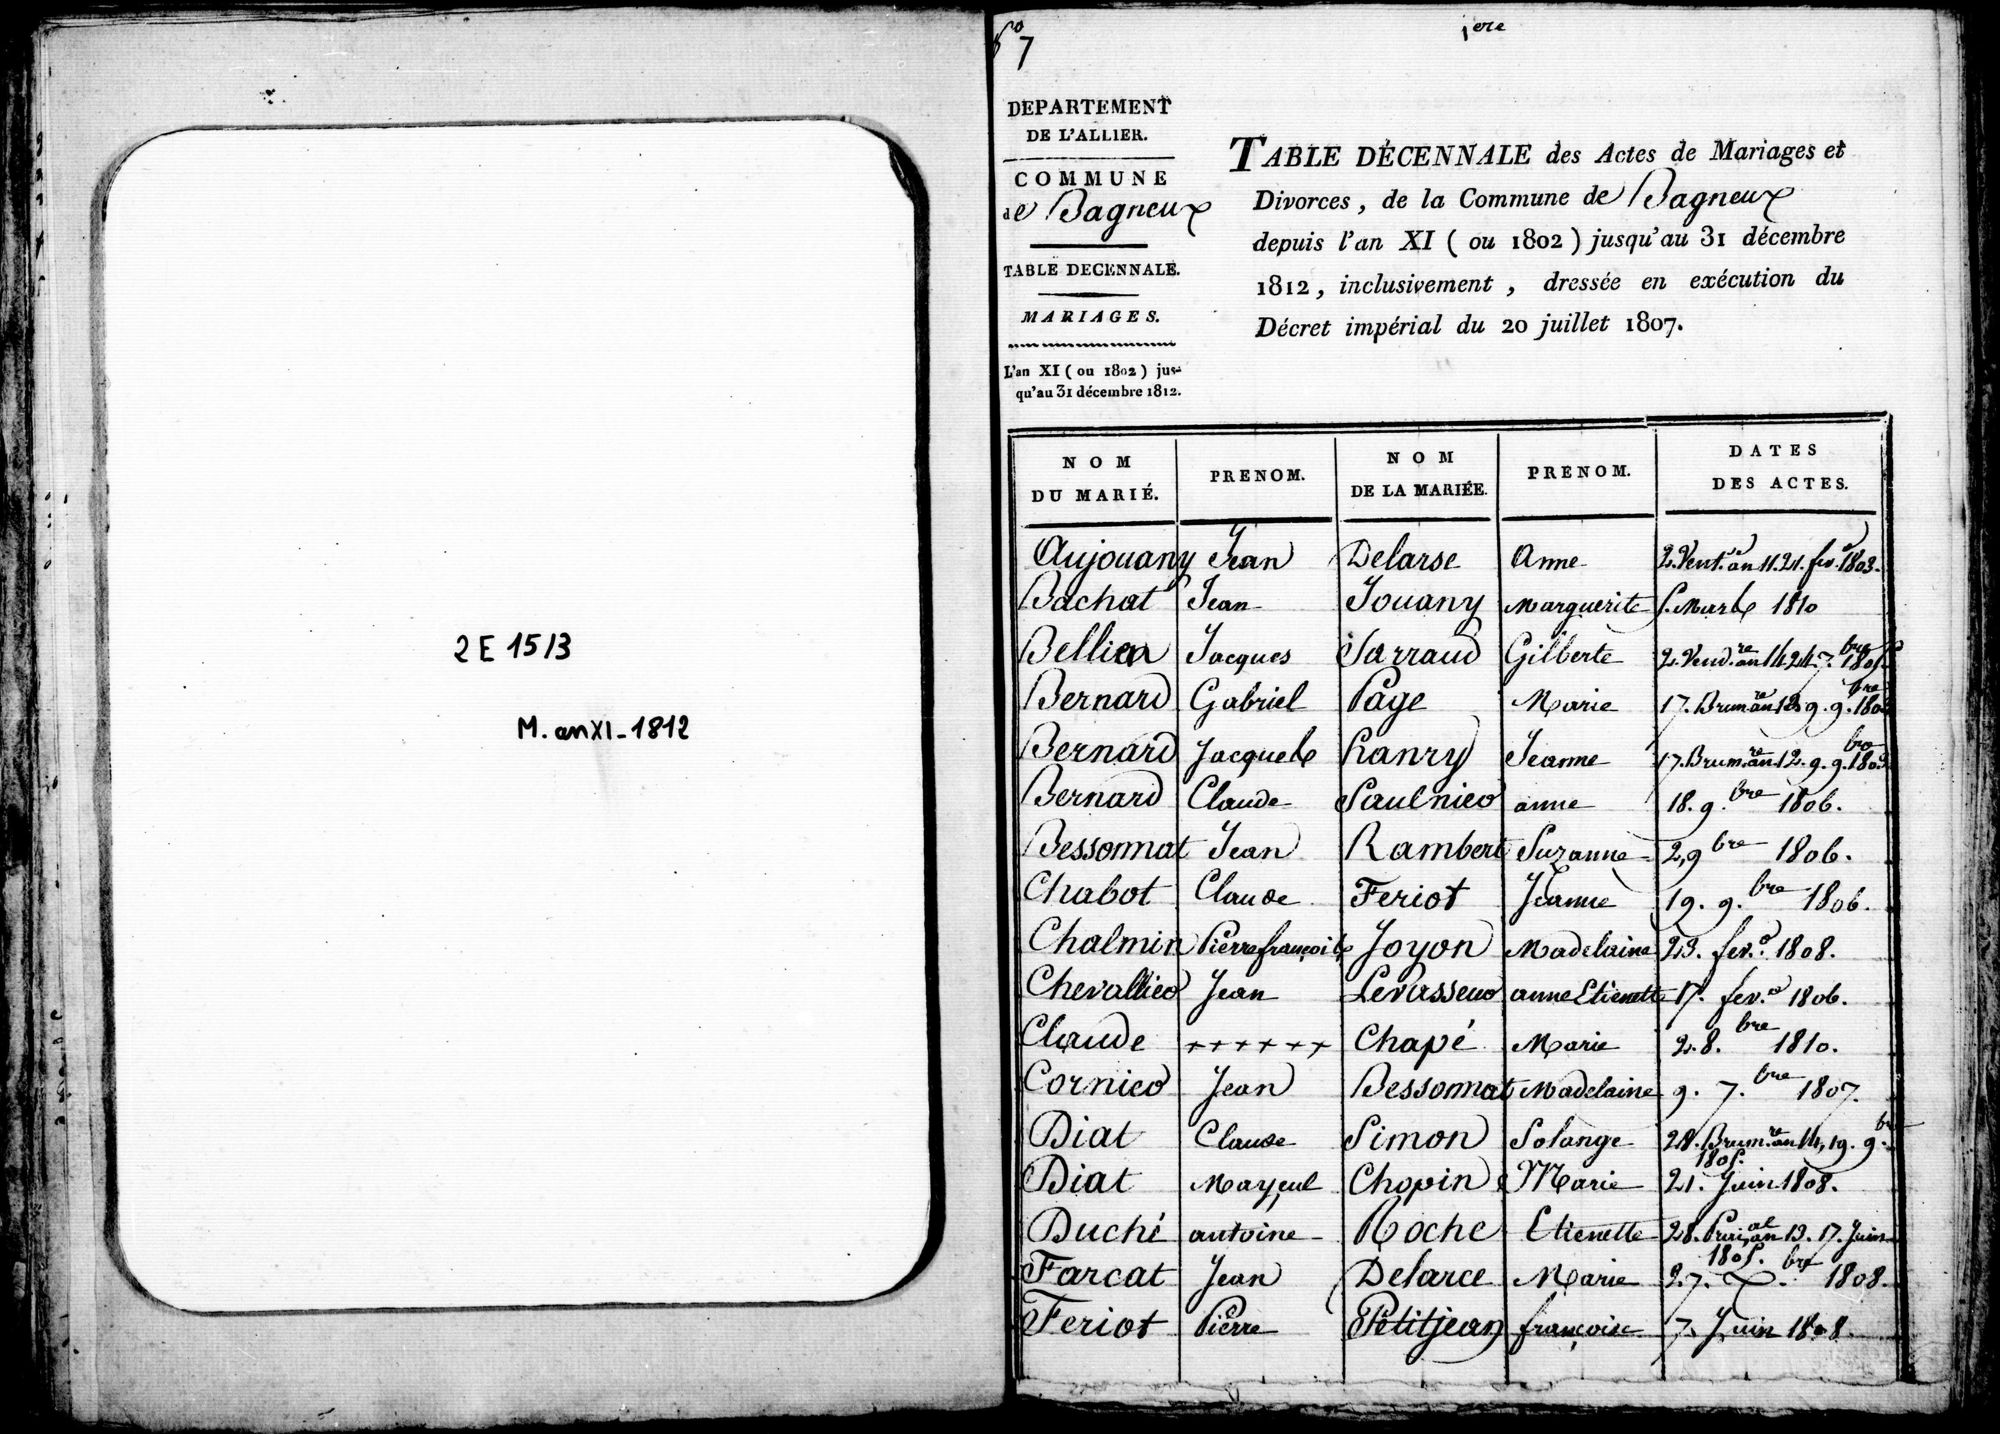 2 E 15/3
M. an XI - 1812
fo 7
1ere
DEPARTEMENT
DE L'ALLIER.
COMMUNE
de Bagneux
TABLE DECENNALE.
MARIAGES.
L'an XI (ou 1802) jus-
qu'au 31 décembre 1812.
TABLE DÉCENNALE des Actes de Mariages et
Divorces, de la Commune de Bagneux
depuis l'an XI (ou 1802) jusqu'au 31 décembre
1812, inclusivement, dressée en exécution du
Décret impérial du 20 juillet 1807.
NOM DU MARIÉ. PRENOM. NOM DE LA MARIÉE. PRENOM. DATES DES ACTES.
Aujouany Jean Delarse Anne 2. Vent.se an 11. 21. fev.r 1803.
Bachat Jean Jouany Marguerite 1. Mars 1810
Bellien Jacques Sarraud Gilberte 2. Vend.re an 14. 24. 7.bre 1805.
Bernard Gabriel Page Marie 17. Brum.re an 12. 9. 9.bre 1803
Bernard Jacques Lanry Jeanne 17. Brum.re an 12. 9. 9.bre 1803
Bernard Claude Saulnier anne 18. 9.bre 1806.
Bessonnat Jean Rambert Suzanne 2, 9bre 1806.
Chabot Claude Feriot Jeanne 19. 9.bre 1806.
Chalmin Pierre françois Joyon Madelaine 23. fev.r 1808.
Chevallier Jean Levasseur anne Etienette 17. fev.r 1806.
Claude ++++++ Chapé Marie 2. 8.bre 1810.
Cornier Jean Bessonnat Madelaine 9. 7.bre 1807.
Diat Claude Simon Solange 28. Brum.re an 14, 19. 9.bre
1805.
Diat Mayeul Chopin Marie 21. Juin 1808.
Duché antoine Roche Etienette 28. Prairial an 13. 17. Juin
1805.
Farcat Jean Delarce Marie 27. X.bre 1808.
Feriot Pierre Petitjean françoise 7. Juin 1808.